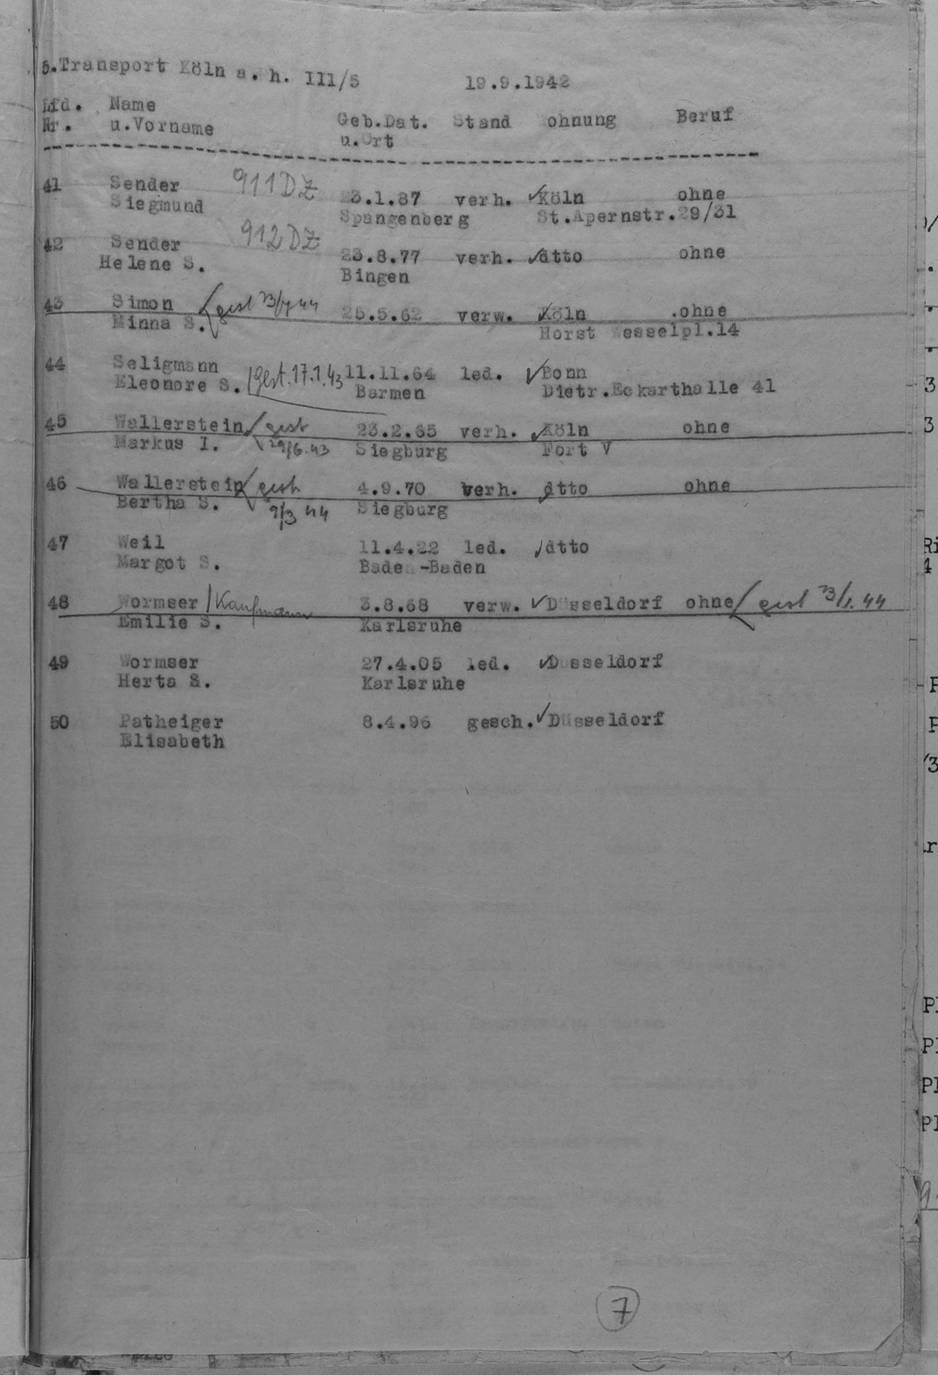 5.Transport Köln a. h. III/5 19.9.1942
Lfd. Name
Nr. u.Vorname Geb.Dat. Stand ohnung Beruf
u.Ort
41 Sender 911DZ 23.1.87 verh. Köln ohne
Siegmund Spangenberg St.Apernstr.29/31
42 Sender 912DZ 23.8.77 verh. dtto ohne
Helene S. Bingen
43 Simon gest 25.5.62 verw. Köln .ohne
Minna S. Horst esselpl.14
44 Seligmann gest.17.1.43 11.11.64 led. Bonn
Eleonore S. Barmen Dietr.Eckarthalle 41
45 Wallerstein gest 23.2.65 verh. Köln ohne
Markus I. 29/6.43 Siegburg Fort V
46 Wallerstein gest 4.9.70 verh. dtto ohne
Bertha S. 9/3 44 Siegburg
47 Weil 11.4.22 led. dtto
Margot S. Baden-Baden
48 Wormser Kaufmann 3.8.68 verw. Düsseldorf ohne gest 23/1. 44
Emilie S. Karlsruhe
49 Wormser 27.4.05 led. Düsseldorf
Herta S. Karlsruhe
50 Patheiger 8.4.96 gesch. Düsseldorf
Elisabeth
7